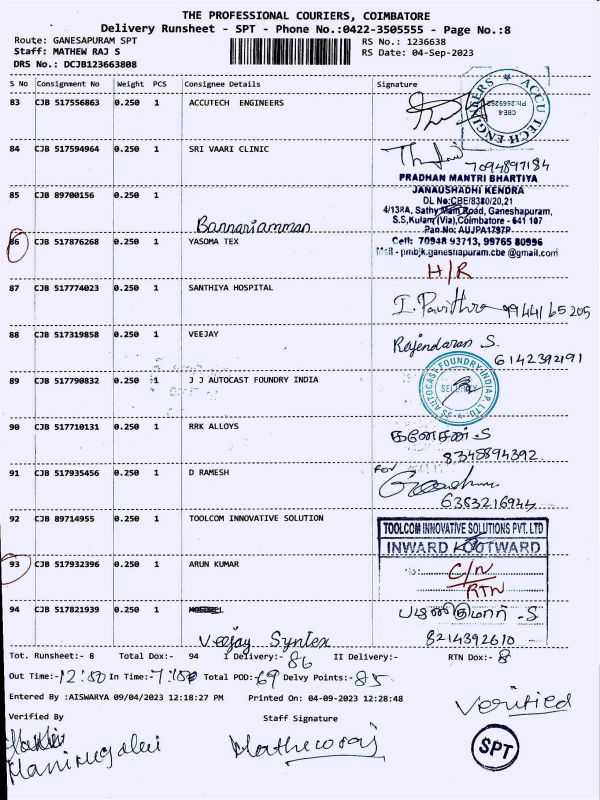 THE PROFESSIONAL COURIERS, COIMBATORE
Delivery Runsheet - SPT - Phone No.:0422-3505555 - Page No.:8
Route: GANESAPURAM SPT RS No.: 1236638
Staff: MATHEW RAJ S RS Date: 04-Sep-2023
DRS No.: DCJB123663808
S No Consignment No Weight PCS Consignee Details Signature
83 CJB 517556863 0.250 1 ACCUTECH ENGINEERS
ACCU TECH ENGINEERS
84 CJB 517594964 0.250 1 SRI VAARI CLINIC
7094897184
PRADHAN MANTRI BHARTIYA
JANAUSHADHI KENDRA
85 CJB 89700156 0.250 1 Bannariamman
DL No:CBE/8380/20,21
4/138A, Sathy Main Road, Ganeshapuram,
S.S,Kulam(Via),Coimbatore - 641 107
Pan No: AUJPA1797P
86 CJB 517876268 0.250 1 YASOMA TEX
Cell: 70948 93713, 99765 80996
Mail - pmbjk.ganeshapuram.cbe @gmail.com
H/R
87 CJB 517774023 0.250 1 SANTHIYA HOSPITAL
I. Pavithra 9944165205
88 CJB 517319858 0.250 1 VEEJAY
Rajendaran S.
6142392191
89 CJB 517790832 0.250 1 J J AUTOCAST FOUNDRY INDIA
90 CJB 517710131 0.250 1 RRK ALLOYS
கணேசன்.S
8348894392
91 CJB 517935456 0.250 1 D RAMESH
for
6383216944
92 CJB 89714955 0.250 1 TOOLCOM INNOVATIVE SOLUTION
TOOLCOM INNOVATIVE SOLUTIONS PVT. LTD
INWARD / OUTWARD
93 CJB 517932396 0.250 1 ARUN KUMAR
No:
C/N
RTN
94 CJB 517821939 0.250 1
Veejay Syntex
8214392610
Tot. Runsheet:- 8 Total Dox:- 94 I Delivery:- 86 II Delivery:- RTN Dox:- 8
Out Time:- In Time:- Total POD:- 69 Delvy Points:- 85
Entered By :AISWARYA 09/04/2023 12:18:27 PM Printed On: 04-09-2023 12:28:48
Verified
Verified By Staff Signature
Mathewraj
SPT